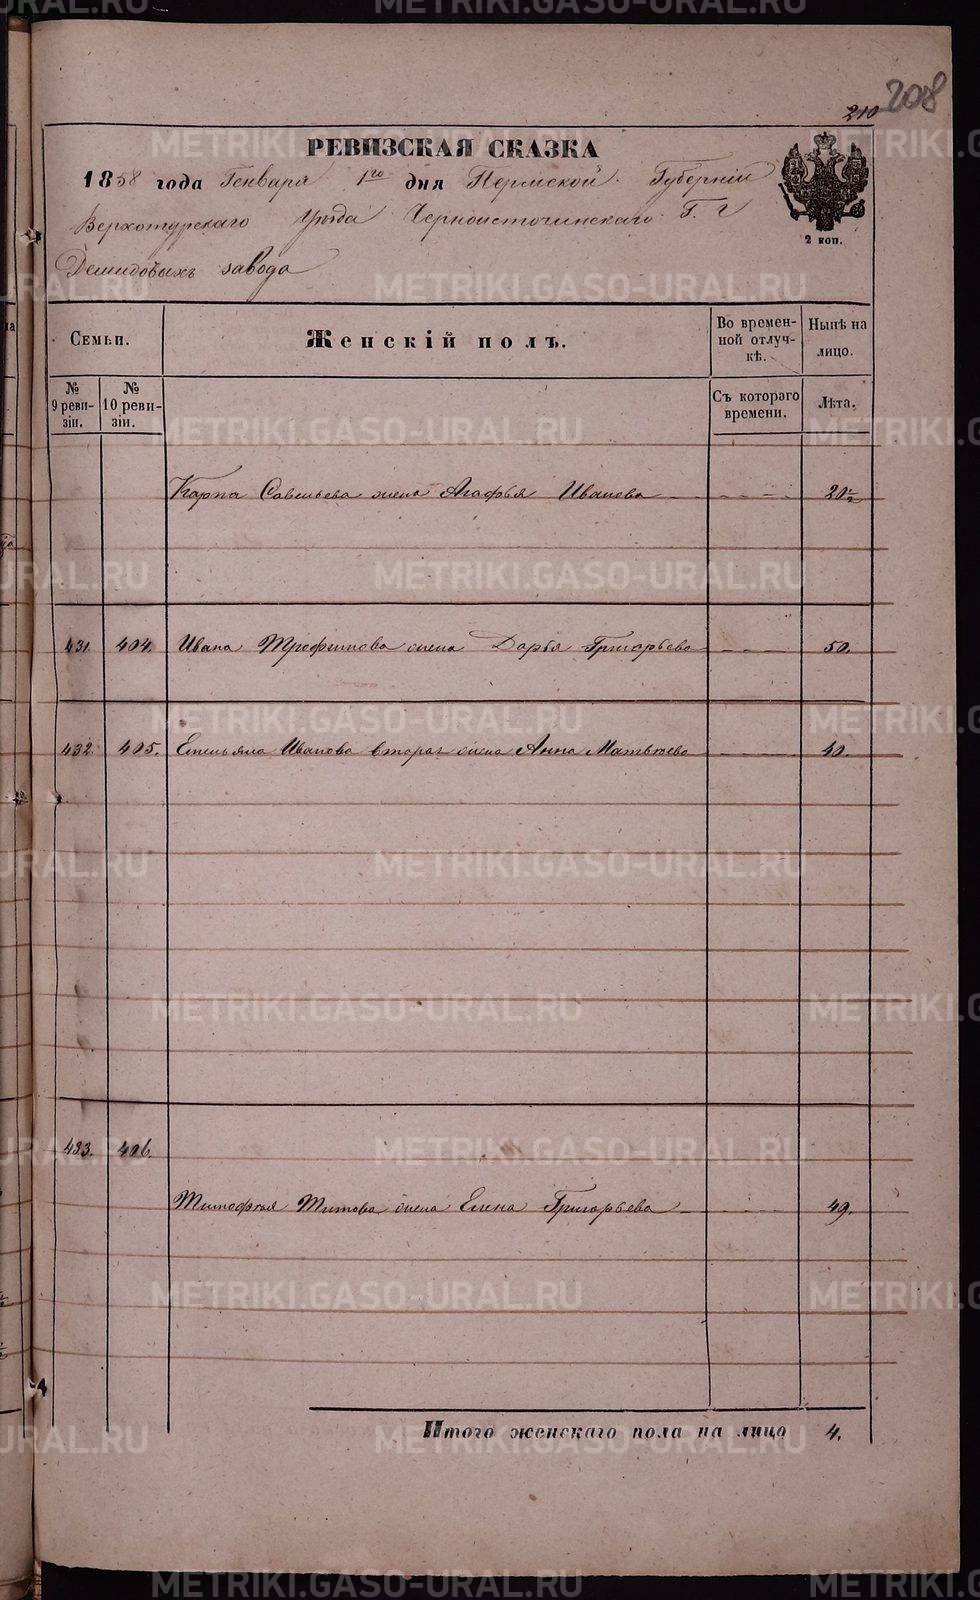 208
210
РЕВИЗСКАЯ СКАЗКА
1858 года Генваря 1го дня Пермской Губерніи
Верхотурскаго Уѣзда Черноисточинскаго Г. г
Демидовыхъ завода
2 коп.
Семьи. Женскій полъ. Во времен-ной отлуч-кѣ. Нынѣ на лицо.
№ 9 реви-зіи. № 10 реви-зіи. Съ котораго времени. Лѣта.
Карпа Савельева жена Агафья Иванова 20½
431. 404. Ивана Трофимова жена Дарья Григорьева 50.
432. 405. Емельяна Иванова вторая жена Анна Матвѣева 40.
433. 406.
Тимофея Титова жена Елена Григорьева 49.
Итого женскаго пола на лицо 4.
METRIKI.GASO-URAL.RU